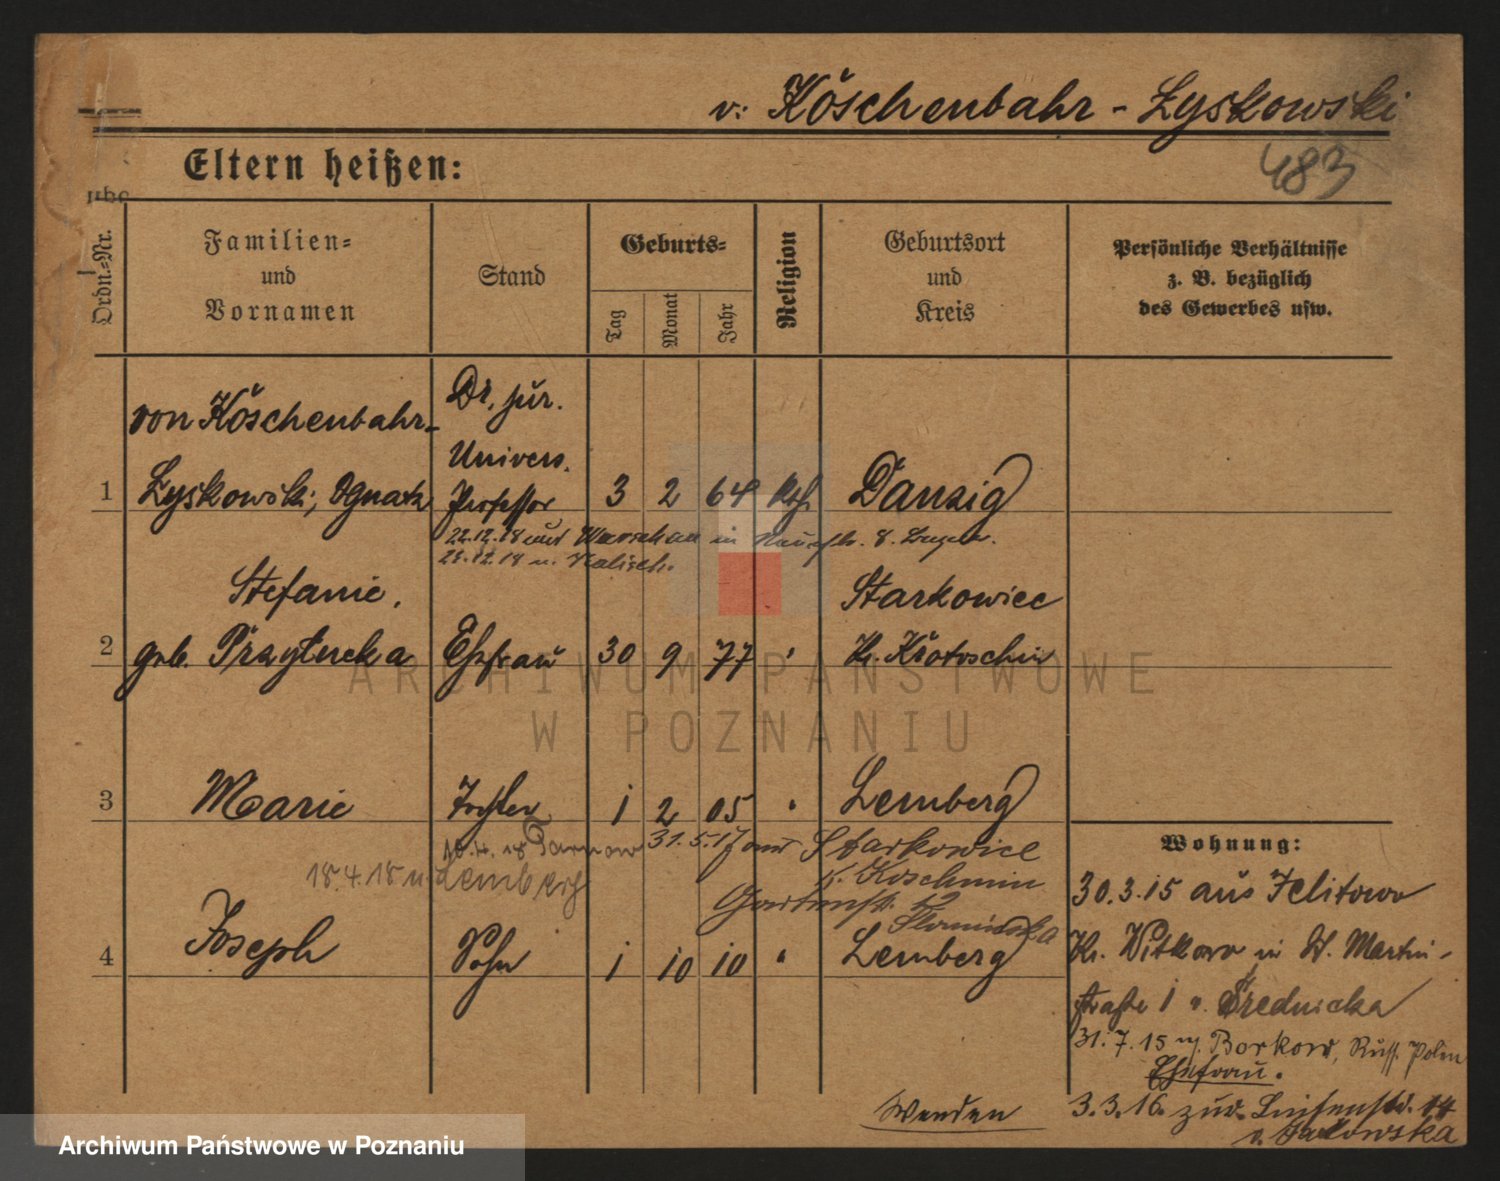 v. Köschenbahr-Łyskowski
483
Eltern heißen:
Ordn.-Nr.
Familien-
und
Vornamen
Stand
Geburts-
Tag
Monat
Jahr
Religion
Geburtsort
und
Kreis
Persönliche Verhältnisse
z. B. bezüglich
des Gewerbes usw.
von Köschenbahr-
Dr. jur.
Univers.
1 Łyskowski, Ignatz Professor 3 2 64 kth. Danzig
22.12.18 auf Warschau in
28.12.18 n. Kalisch.
Stefanie, Starkowiec
2 geb. Przyłucka Ehefrau 30 9 77 " Kr. Krotoschin
3 Marie Tochter 1 2 05 " Lemberg
18.4.18 n. Lemberg
Tarnow 31.5.17 Starkowice
K. Koschmin
Gartenstr. 12
4 Joseph Sohn 1 10 10 " Lemberg
Wohnung:
30.3.15 aus Jelitowo
Kr. Witkowo in St. Martin-
straße 1 v. Średnicka
31.7.15 n. Borkow, Russ. Polen
Ehefrau.
3.3.16. zur. Luisenstr. 14
Wenden
Archiwum Państwowe w Poznaniu
ARCHIWUM PAŃSTWOWE
W POZNANIU